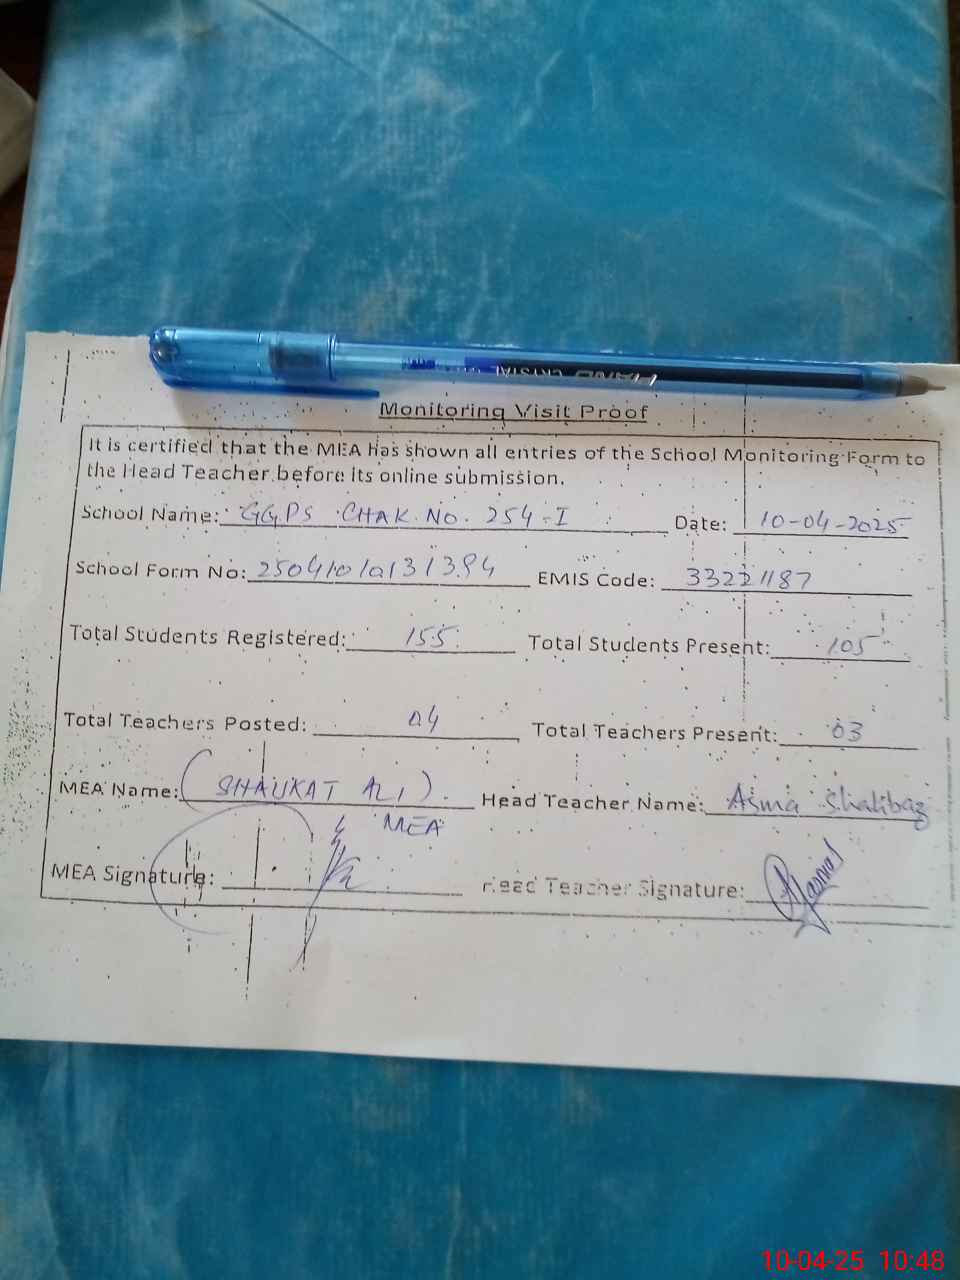 Monitoring Visit Proof
It is certified that the MEA has shown all entries of the School Monitoring Form to
the Head Teacher before its online submission.
School Name: GGPS CHAK NO. 254-I Date: 10-04-2025
School Form No: EMIS Code: 33221187
Total Students Registered: 155 Total Students Present: 105
Total Teachers Posted: 04 Total Teachers Present: 03
MEA Name: (SHAUKAT ALI) Head Teacher Name: Asma Shahbaz
MEA
MEA Signature: Head Teacher Signature:
10-04-25 10:48